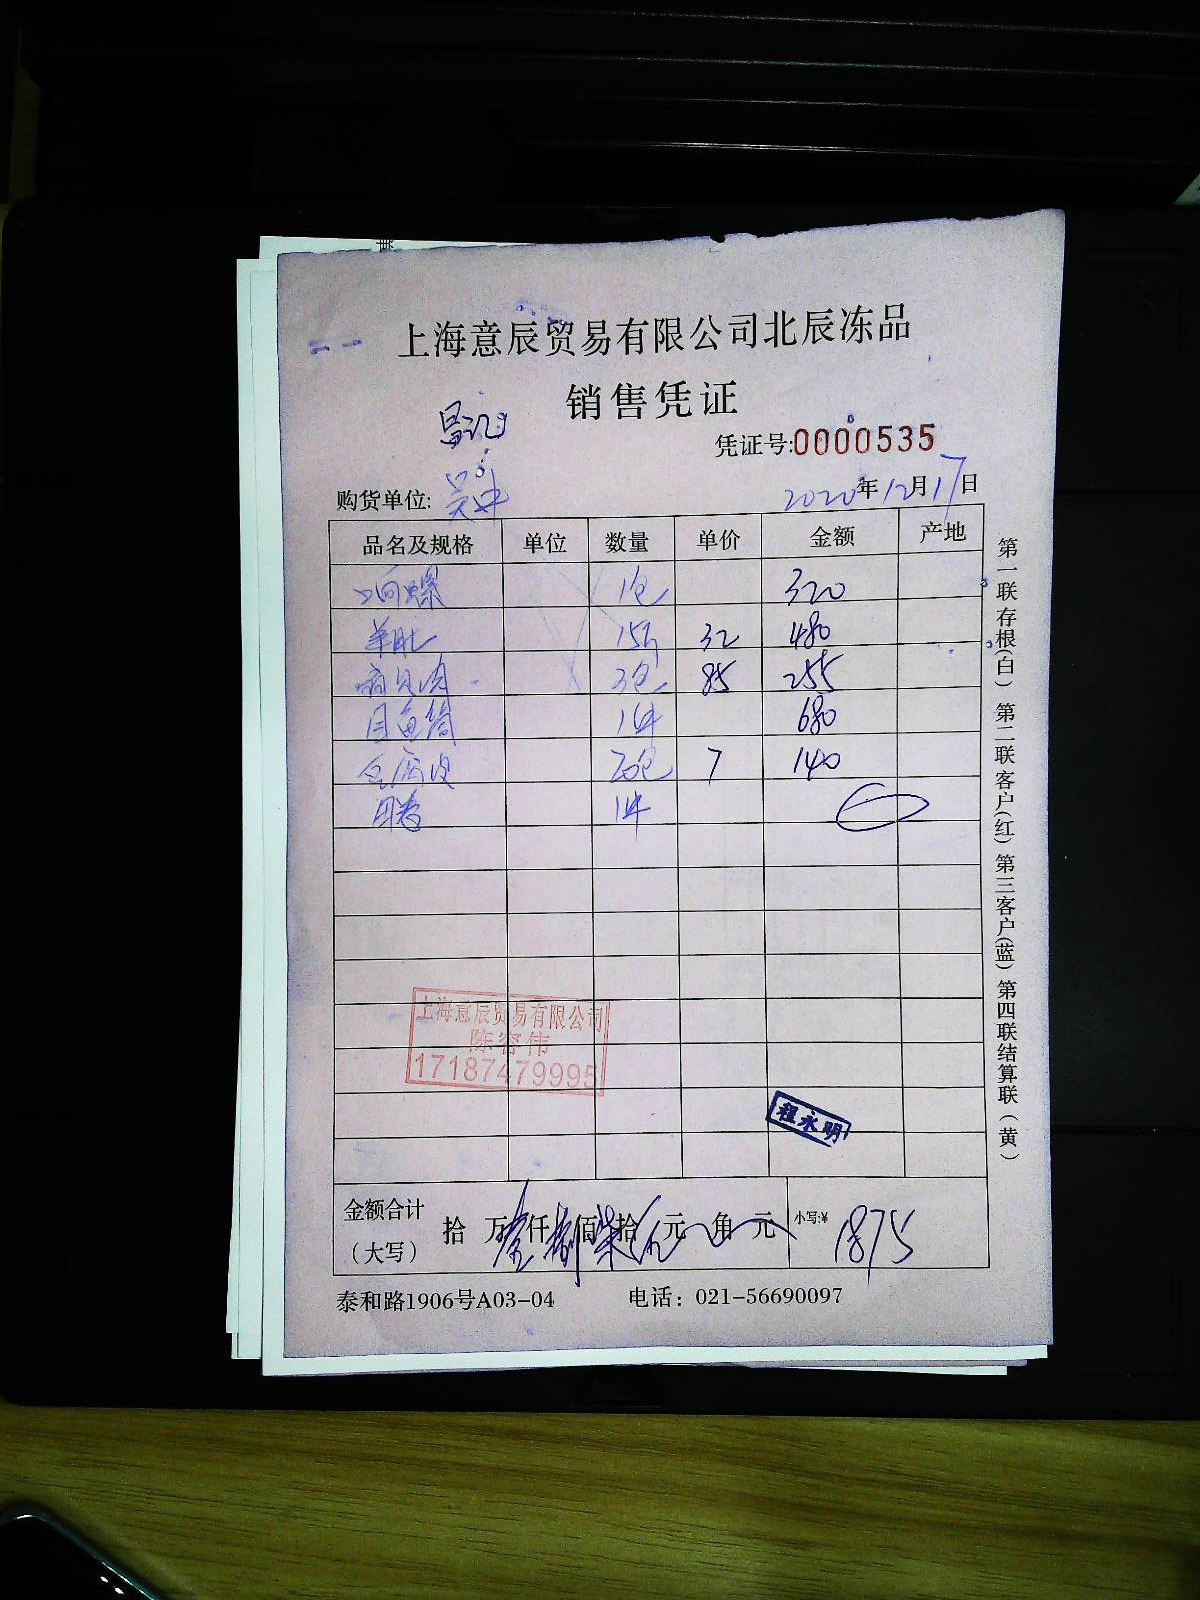 上海意辰贸易有限公司北辰冻品
销售凭证
凭证号:0000535
购货单位: 2020年12月17日
品名及规格 单位 数量 单价 金额 产地
1包 320
羊肚 15斤 32 480
3包 85 255
目鱼筒 1件 680
20包 7 140
1件
上海意辰贸易有限公司
陈容伟
17187479995
程永明
金额合计（大写） 拾 万壹仟捌佰柒拾伍元 角 元 小写:¥ 1875
泰和路1906号A03-04 电话：021-56690097
第一联存根(白) 第二联客户(红) 第三客户(蓝) 第四联结算联(黄)